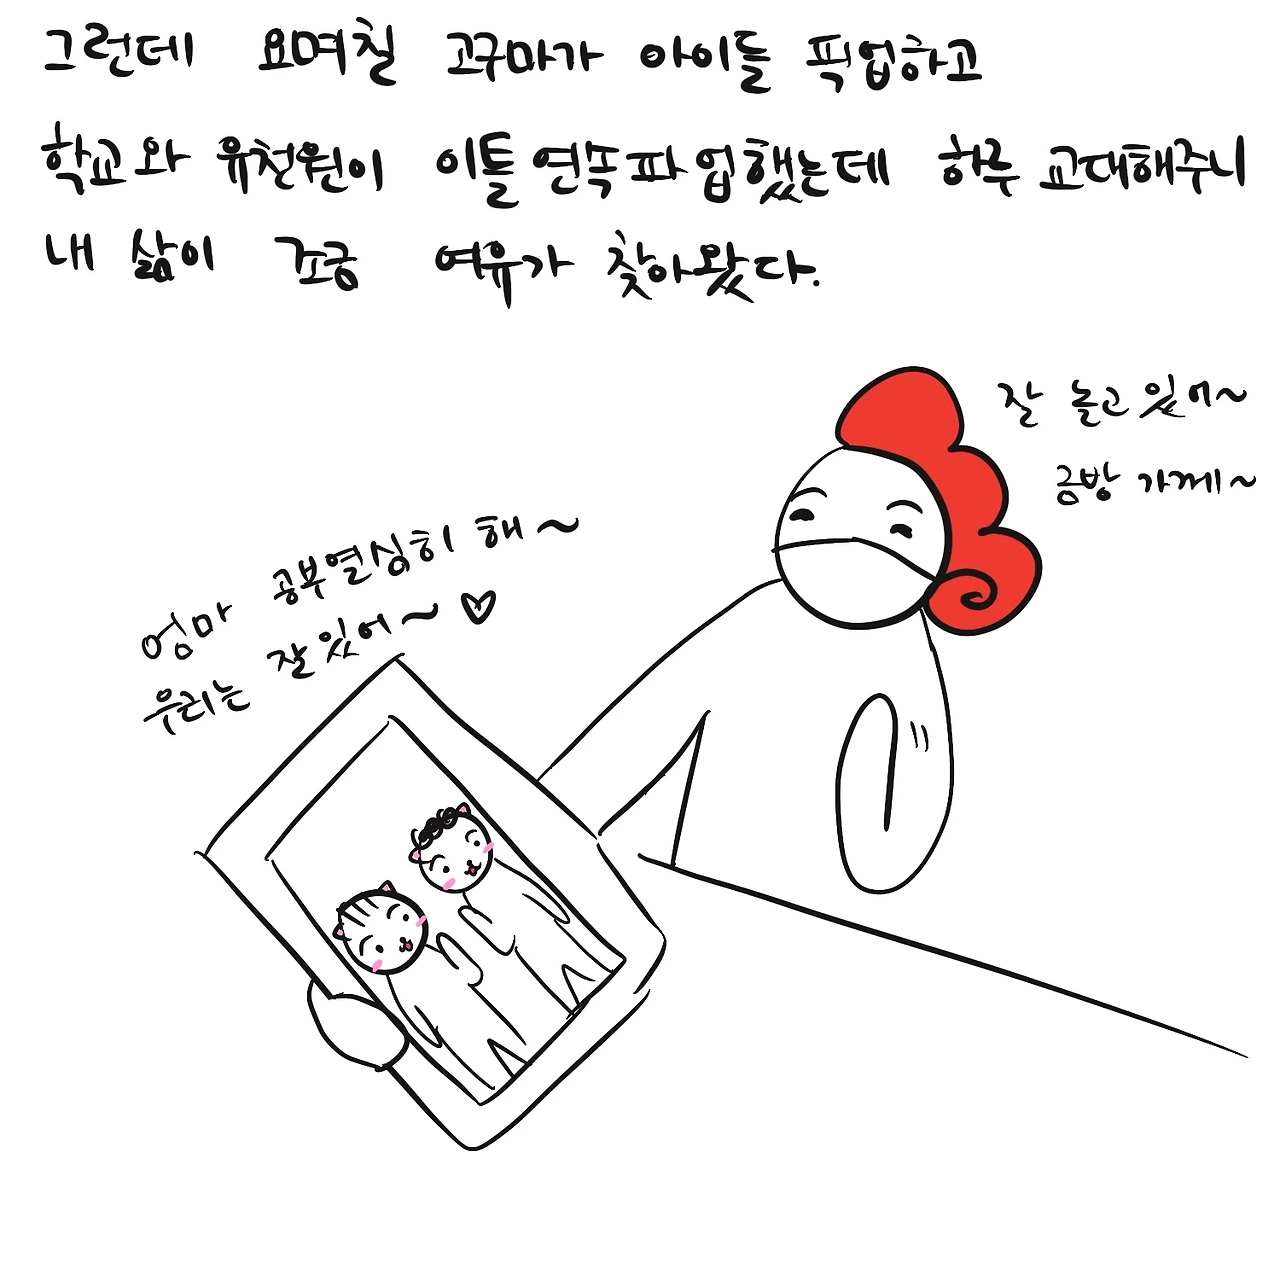 그런데 요며칠 고구마가 아이들 픽업하고
학교와 유천원이 이틀연속파업했는데 하루 교대해주니
내 삶이 조금 여유가 찾아왔다.
잘 놀고 있어~
금방 가께~
엄마 공부열심히 해~
우리는 잘있어~♡